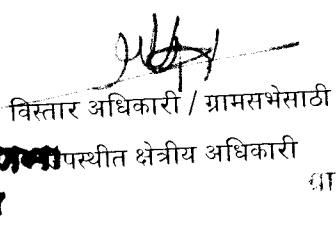 विस्तार अधिकारी / ग्रामसभेसाठी
क्षेत्रीय अधिकारी